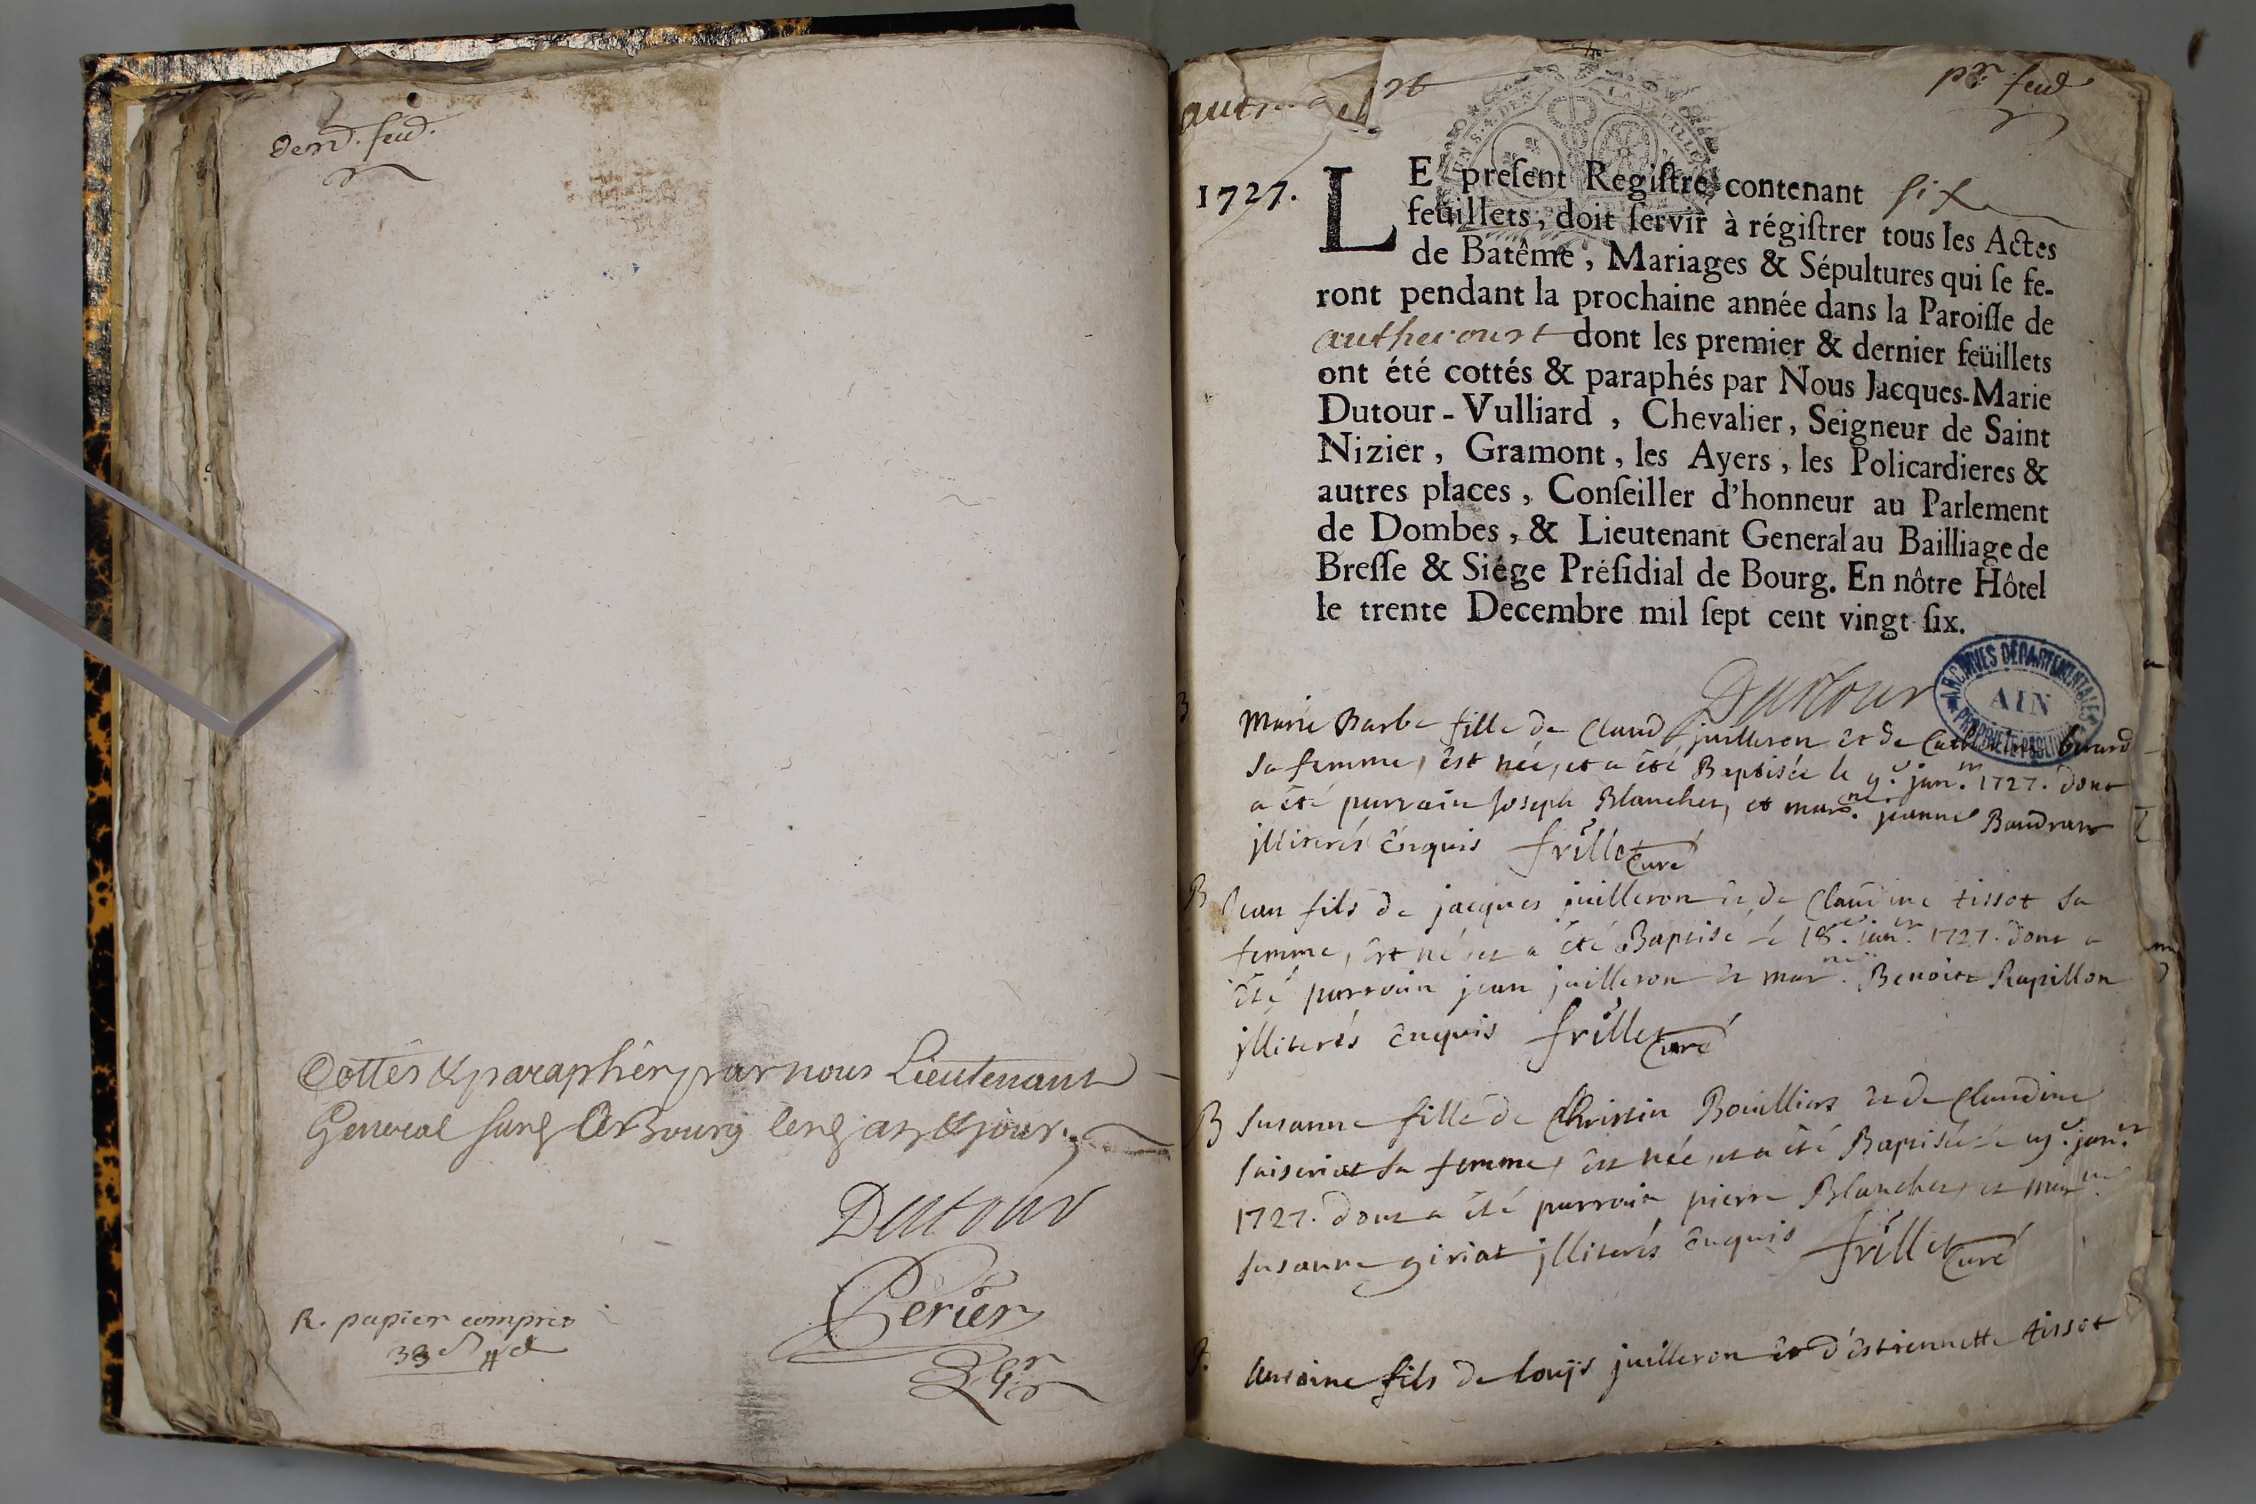 dern. feu.
Cottés & paraphés par nous Lieutenant
General susd. à Bourg lesd. an & jour.
Dutour
Perier
R. papier compris
autrecourt
pr. feud
1727.
LE present Registre contenant six
feüillets, doit servir à régistrer tous les Actes
de Batême, Mariages & Sépultures qui se fe-
ront pendant la prochaine année dans la Paroisse de
authecourt dont les premier & dernier feüillets
ont été cottés & paraphés par Nous Jacques-Marie
Dutour-Vulliard, Chevalier, Seigneur de Saint
Nizier, Gramont, les Ayers, les Policardieres &
autres places, Conseiller d'honneur au Parlement
de Dombes, & Lieutenant General au Bailliage de
Bresse & Siége Présidial de Bourg. En nôtre Hôtel
le trente Decembre mil sept cent vingt six.
Dutour
ARCHIVES DÉPARTEMENTALES
AIN
PROPRIÉTÉ PUBLIQUE
B
Marie Barbe fille de Claud juilleron et de Catherine
sa femme, est née, et a été Baptisée le 9e. janr. 1727. dont
a été parrain Joseph Blanchet, et marne. jeanne Baudran
jlliterés énquis frillet Curé
B Jean fils de jacques juilleron et de Claudine tissot sa
femme, est né et a été Baptisé le 18e. janr. 1727. dont a
été parrain jean juilleron et marne. Benoite Rapillon
jlliterés énquis frillet Curé
B Susanne fille de Christin Bouillier et de Claudine
sa femme, est née et a été Baptisée le janr.
1727. dont a été parrain pierre Blanchet, et marne.
susanne giriat jlliterés énquis frillet Curé
Antoine fils de louis juilleron et d'éstiennette tissot